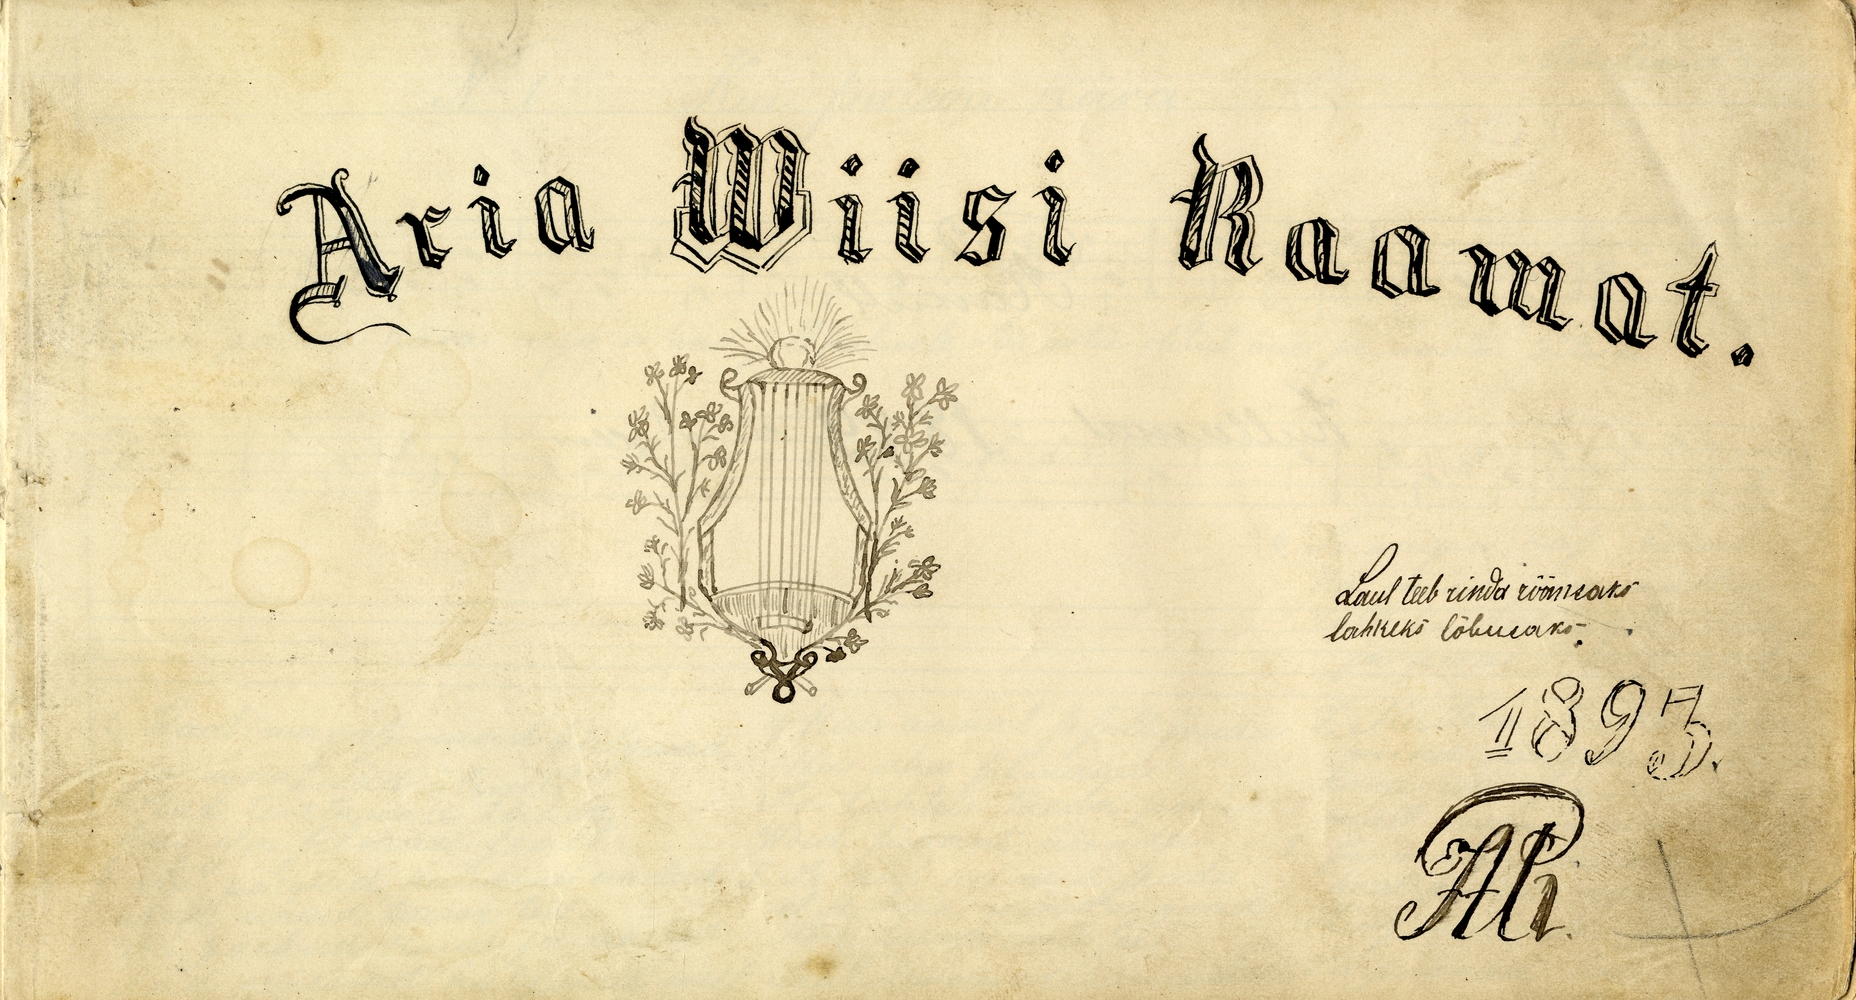 Aria Wiisi Raamat.
Laul teeb rinda rõõmsaks
lahkeks lõbusaks.
1893.